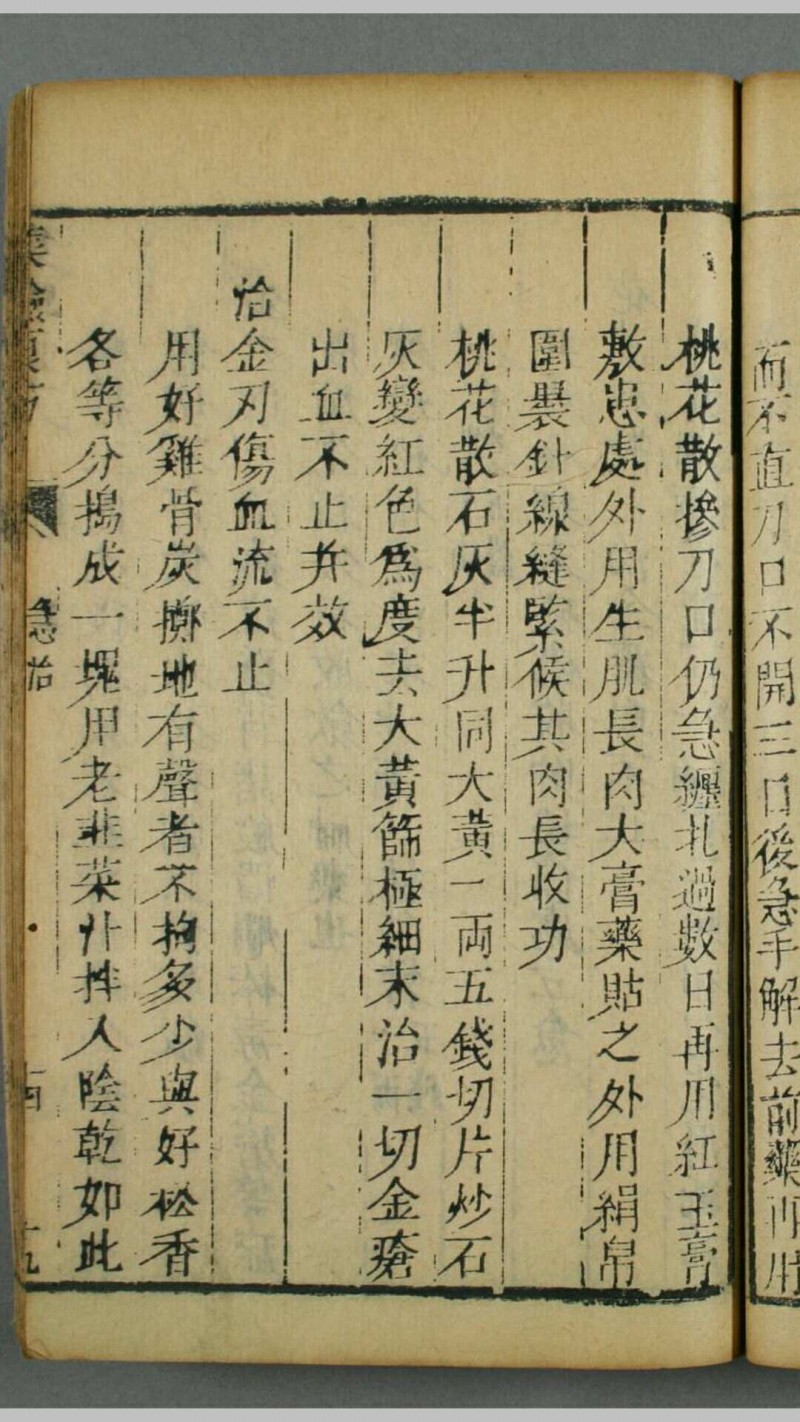 而不直刀口不開三日後急手解去前藥再用
桃花散摻刀口仍急纏扎過數日再用紅玉膏
敷患處外用生肌長肉大膏藥貼之外用絹帛
圍裝針線縫緊候其肉長收功
桃花散石灰半升同大黃一両五錢切片炒石
灰變紅色為度去大黃篩極細末治一切金瘡
出血不止并效
治金刃傷血流不止
用好雞骨炭擲地有聲者不拘多少與好松香
各等分搗成一塊用老韭菜汁拌入陰乾如此
急治